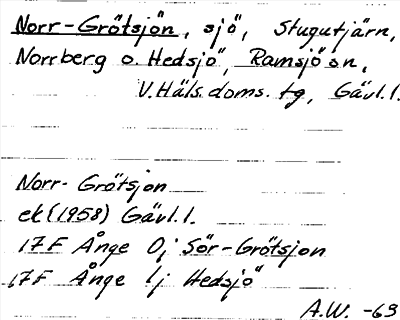 Norr-Grötsjön, sjö, Stugutjärn,
Norrberg o. Hedsjö, Ramsjöån,
V. Häls. doms. tg, Gävl. l.
Norr-Grötsjön
ek (1958) Gävl. l.
17F Ånge 0j Sör-Grötsjon
17F Ånge 1j Hedsjö
A.W. -69